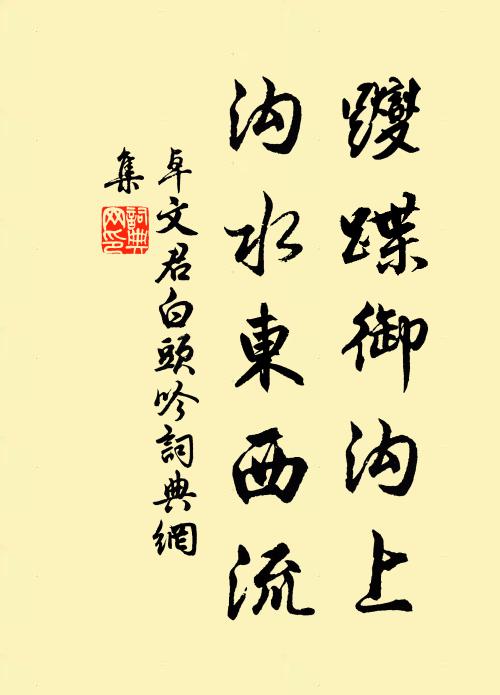 躞蹀御沟上
沟水東西流
卓文君白頭吟詞典網
集
詞典网印